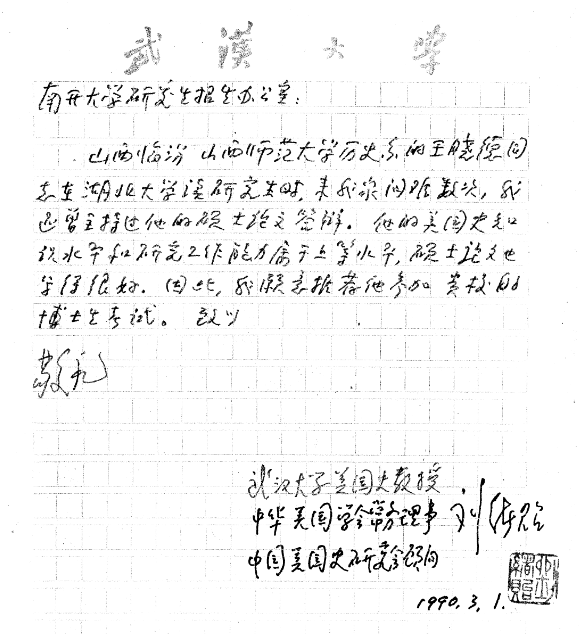 武漢大学
南开大学研究生招生办公室:
山西临汾 山西师范大学历史系的王晓德同
志在湖北大学读研究生时,来我家问难数次,我
还曾主持过他的硕士论文答辩。他的美国史知
识水平和研究工作能力属于上等水平,硕士论文也
写得很好。因此,我愿意推荐他参加 贵校的
博士生考试。 致以
敬礼
武汉大学美国史教授
中华美国学会常务理事 刘绪贻
中国美国史研究会顾问
1990.3.1.